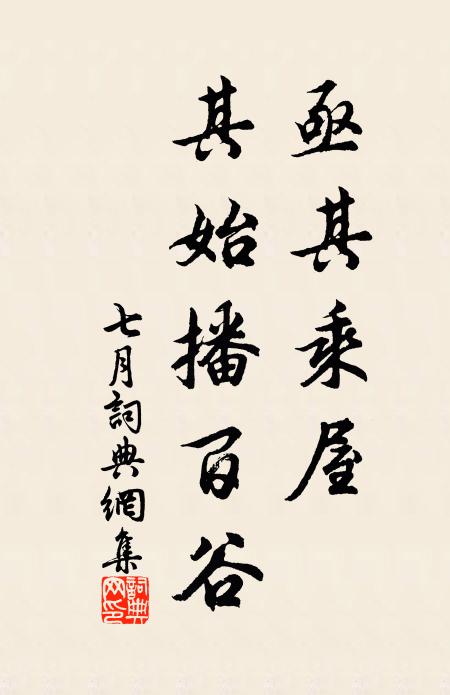 亟其乘屋
其始播百谷
七月詞典網集
詞典
网印